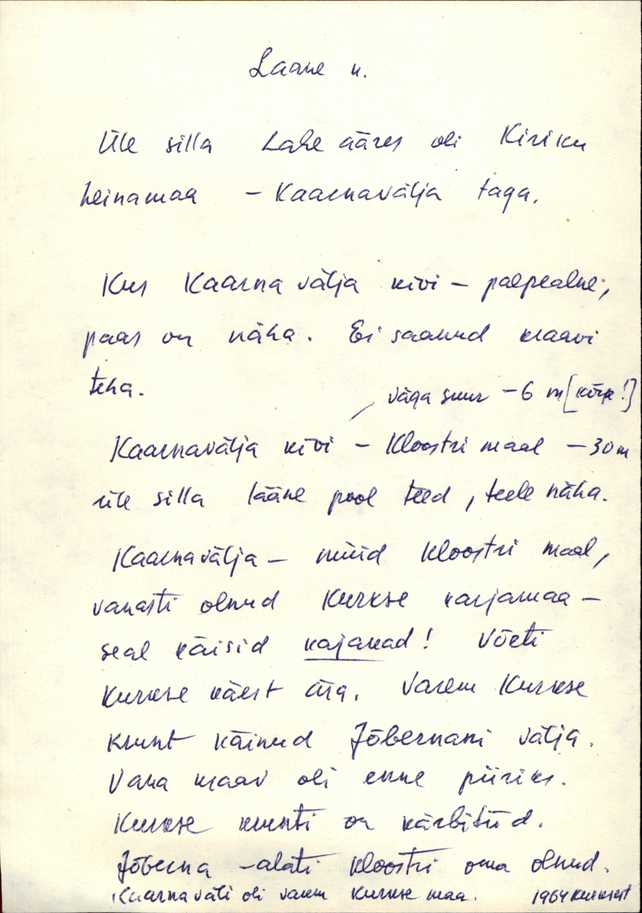 Laane u.
Üle silla Lahe ääres oli Kiriku
heinamaa - Kaarnavälja taga.
Kus Kaarna välja kivi - paepealne;
paas on näha. Ei saanud kraavi
teha.
väga suur - 6 m [kõrge!]
Kaarnavälja kivi - Kloostri maal - 30 m
üle silla lääne pool teed, teele näha.
Kaarnavälja - nüüd kloostri maal,
vanasti olnud Kurkse karjamaa -
seal käisid kajakad! Võeti
Kurkse käest ära. Varem Kurkse
krunt käinud Jõbernani välja.
Vana kraav oli enne piiriks.
Kurkse krunti on kärbitud.
Jõberna - alati kloostri oma olnud.
Kaarnaväli oli varem Kurkse maa. 1964